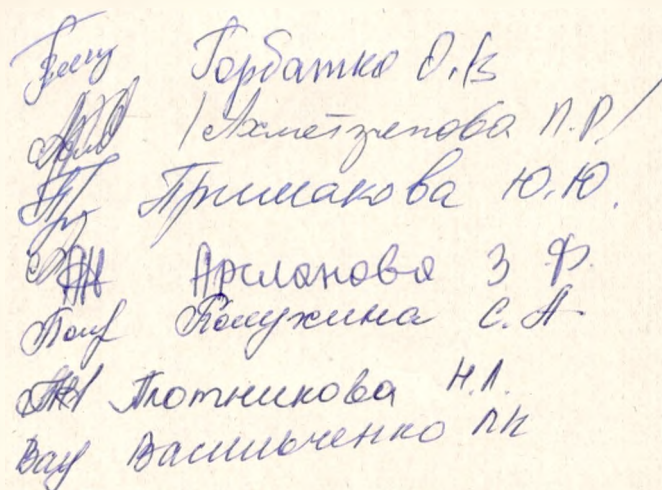 Горбатко О.В
/Ахметзянова П.Р./
Примакова Ю.Ю.
Арсланова З Ф.
Полужина С.А
Плотникова Н.Л.
Вау Васильченко ЛК